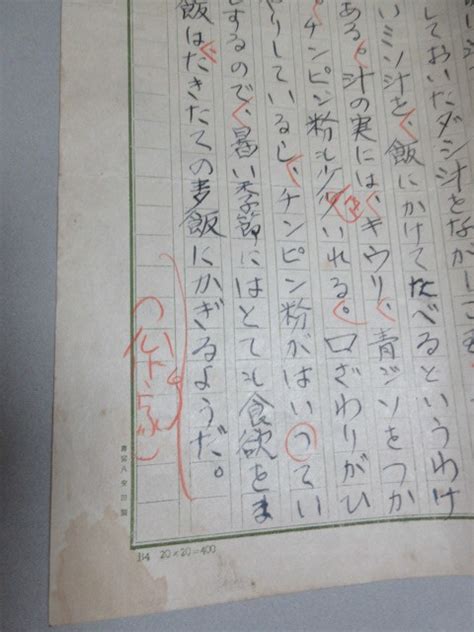 しておいたダシ汁をながしこ
いミソ汁を、飯にかけてたべるというわけ
ある。汁の実には、キウリ、青ジソをつか
チンピン粉も少々いれる。口ざわりがひ
やりしているし、チンピン粉がはいってい
するので、暑い季節にはとても食欲をま
飯はたきたての麦飯にかぎるようだ。
20×20=400